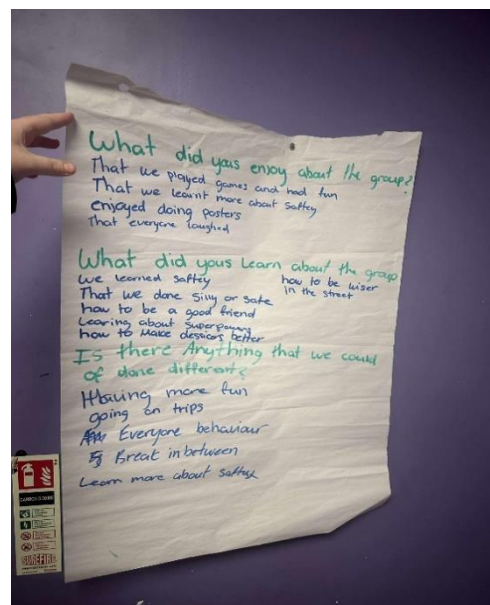 What did yous enjoy about the group?
That we played games and had fun
That we learnt more about Saftey
enjoyed doing posters
That everyone laughed
What did yous Learn about the group
we learned saftey
how to be wiser
in the street
That we done Silly or Safe
how to be a good friend
Learing about Superpowers
how to Make dessicors better
Is there Anything that we could
of done different?
Having more fun
going on trips
Everyone behaviour
Break inbetween
Learn more about saftey
CARBON DIOXIDE
SUREFIRE